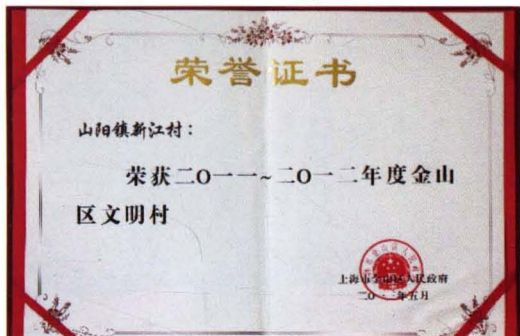 荣誉证书
山阳镇新江村：
荣获二O一一~二O一二年度金山
区文明村
上海市金山区人民政府
二O一三年五月